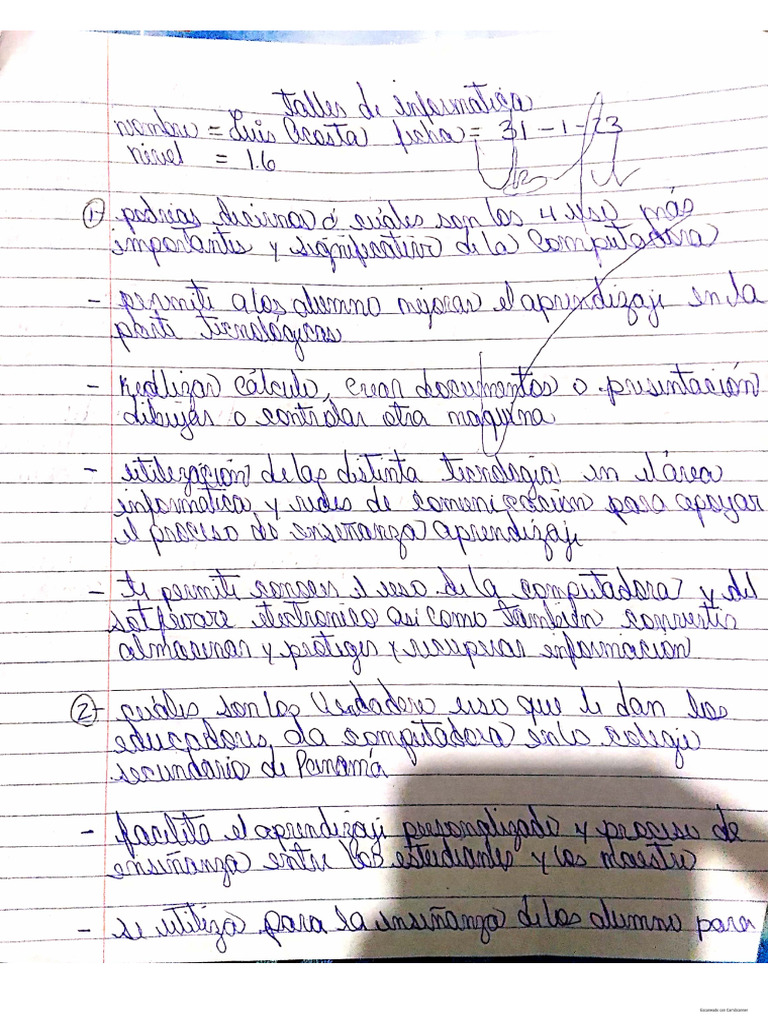 Taller de informatica
nombre = Luis Acosta fecha = 31-1-23
nivel = 1.6
1- podrias decirnos cuáles son los 4 uso más
importantes y significativo de la Computadora
- permite a los alumno mejorar el aprendizaje en la
parte tecnologicas
- Realizar cálculo, crear documentos o presentación
dibujar o controlar otra maquina
- utilización de las distinta tecnologia en el área
informatica y redes de comunicación para apoyar
el proceso de enseñanza aprendizaje
- te permite conocer el uso de la computadora y del
software electronico así como también convertir
almacenar y proteger y recuperar informacion
2- cuáles son los verdadero uso que le dan los
educadores, la computadora en lo colegio
secundario de Panamá
- facilita el aprendizaje personalizado y proceso de
enseñanza entre los estudiantes y los maestro
- se utiliza para la enseñanza de los alumno para
Escaneado con CamScanner